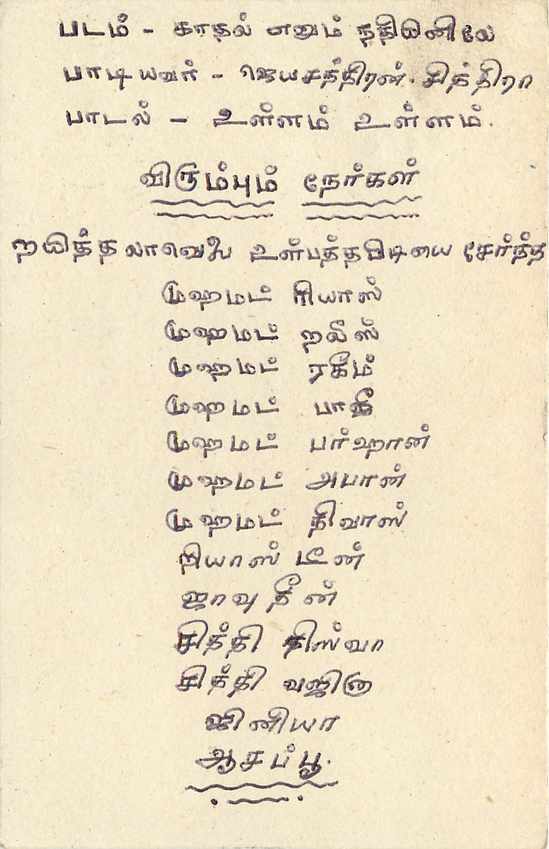 படம் - காதல் எனும் நதியினிலே
பாடியவர் - ஜெயசந்திரன். சித்திரா
பாடல் - உள்ளம் உள்ளம்.
விரும்பும் நேர்கள்
உள்பத்த சேர்ந்த
முஹமட் ரியாஸ்
முஹமட் றலீஸ்
முஹமட் ரகீம்
முஹமட்
முஹமட் பர்ஹான்
முஹமட் அபான்
முஹமட் நிவாஸ்
றியாஸ் டீன்
ஜாவு தீன்
சித்தி ரிஸ்வா
சித்தி வஜிஹா
ஜினியா
ஆசப்பூ.